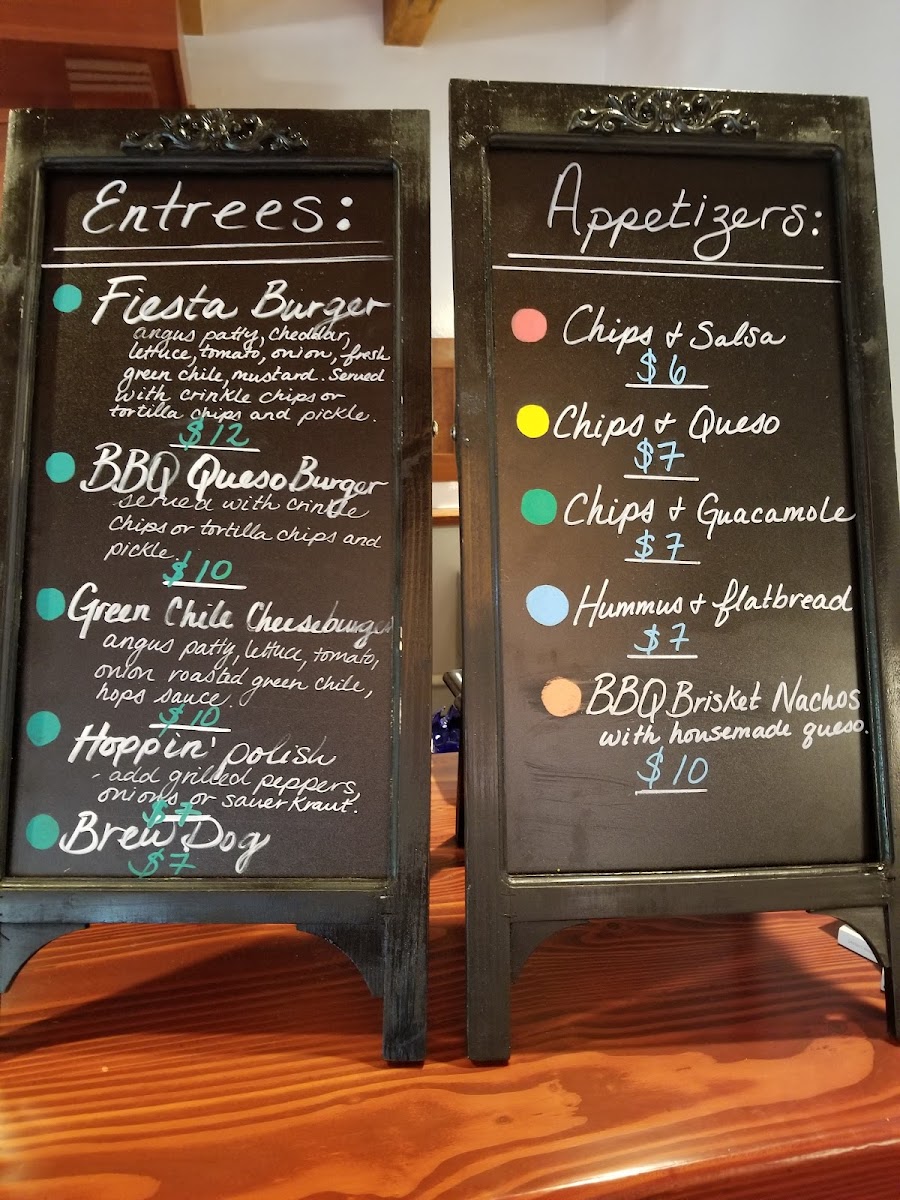 Entrees:
Fiesta Burger
angus patty, cheddar,
lettuce, tomato, onion, fresh
green chile, mustard. Served
with crinkle chips or
tortilla chips and pickle.
$12
BBQ Queso Burger
served with crinkle
chips or tortilla chips and
pickle.
$10
Green Chile Cheeseburger
angus patty, lettuce, tomato,
onion roasted green chile,
hops sauce.
$10
Hoppin' polish
- add grilled peppers,
onions, or sauerkraut.
$7
Brew Dog
$7
Appetizers:
Chips & Salsa
$6
Chips & Queso
$7
Chips & Guacamole
$7
Hummus & flatbread
$7
BBQ Brisket Nachos
with housemade queso.
$10